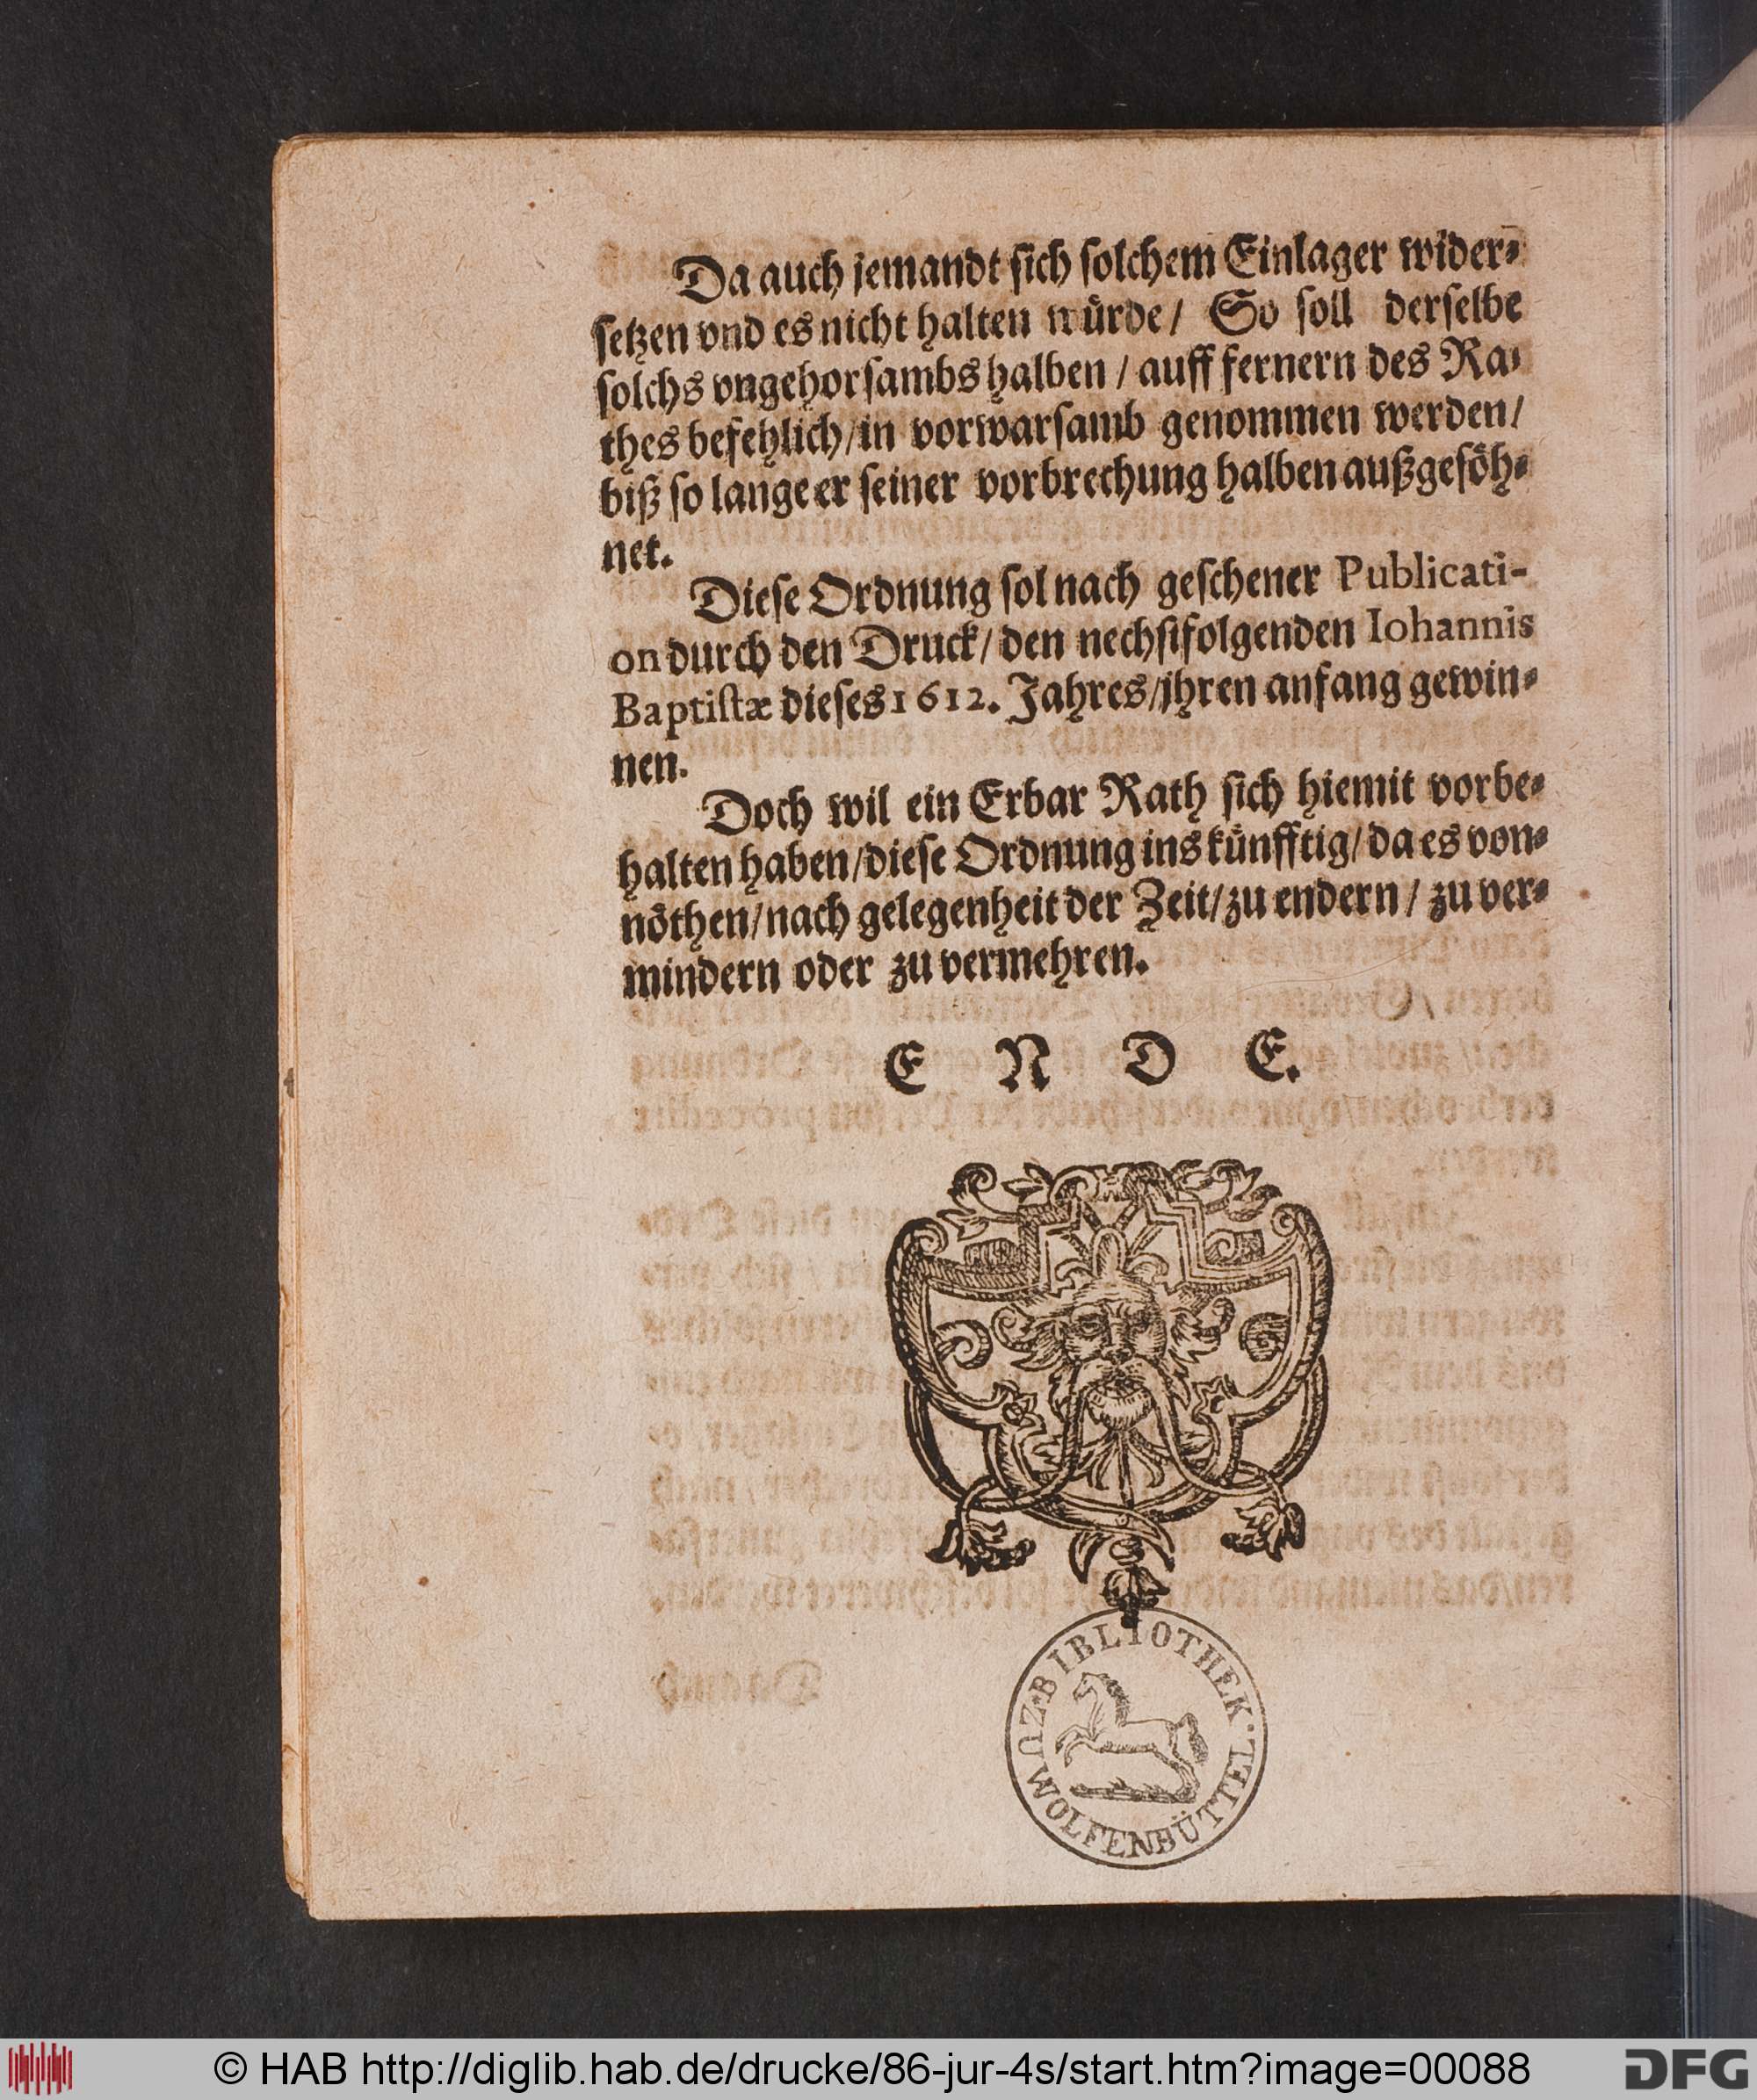 Da auch jemandt sich solchem Einlager wider⸗
setzen vnd es nicht halten würde / So soll derselbe
solchs vngehorsambs halben / auff fernern des Ra⸗
thes befehlich / in vorwarsamb genommen werden /
biß so lange er seiner vorbrechung halben außgesöh⸗
net.
Diese Ordnung sol nach geschener Publicati-
on durch den Druck / den nechstfolgenden Iohannis
Baptistæ dieses 1612. Jahres / jhren anfang gewin⸗
nen.
Doch wil ein Erbar Rath sich hiemit vorbe⸗
halten haben / diese Ordnung ins künfftig / da es von⸗
nöthen / nach gelegenheit der Zeit / zu endern / zu ver⸗
mindern oder zu vermehren.
E N D E.
BIBLIOTHEK
WOLFENBÜTTEL
© HAB http://diglib.hab.de/drucke/86-jur-4s/start.htm?image=00088
DFG